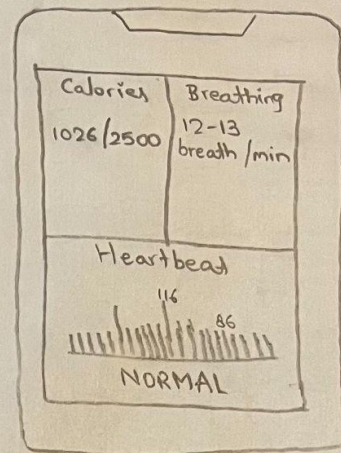 Calories
1026/2500
Breathing
12-13
breath/min
Heartbeat
116
86
NORMAL